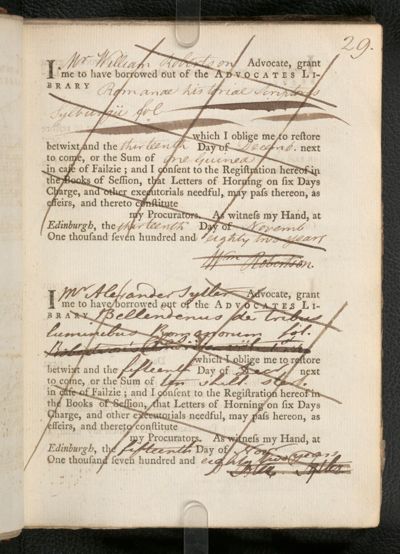 29.
I, Mr William Robertson Advocate, grant
me to have borrowed out of the ADVOCATES LI-
BRARY Romanæ historiæ Scriptores
Sylburgii fol
which I oblige me to reſtore
betwixt and the thirteenth Day of Decemr. next
to come, or the Sum of one Guinea
in caſe of Failzie; and I conſent to the Regiſtration hereof in
the Books of Seſſion, that Letters of Horning on ſix Days
Charge, and other executorials needful, may paſs thereon, as
effeirs, and thereto conſtitute
my Procurators. As witneſs my Hand, at
Edinburgh, the thirteenth Day of Novemb
One thouſand ſeven hundred and eighty two years
Wm Robertson.
I, Mr Alexander Tytler Advocate, grant
me to have borrowed out of the ADVOCATES LI-
BRARY Bellendenus de tribus
luminibus Romanorum fol.
which I oblige me to reſtore
betwixt and the fifteenth Day of Decr next
to come, or the Sum of ten shill. sterl.
in caſe of Failzie; and I conſent to the Regiſtration hereof in
the Books of Seſſion, that Letters of Horning on ſix Days
Charge, and other executorials needful, may paſs hereon, as
effeirs, and thereto conſtitute
my Procurators. As witneſs my Hand, at
Edinburgh, the fifteenth Day of Novr
One thouſand ſeven hundred and eighty two years
Tytler